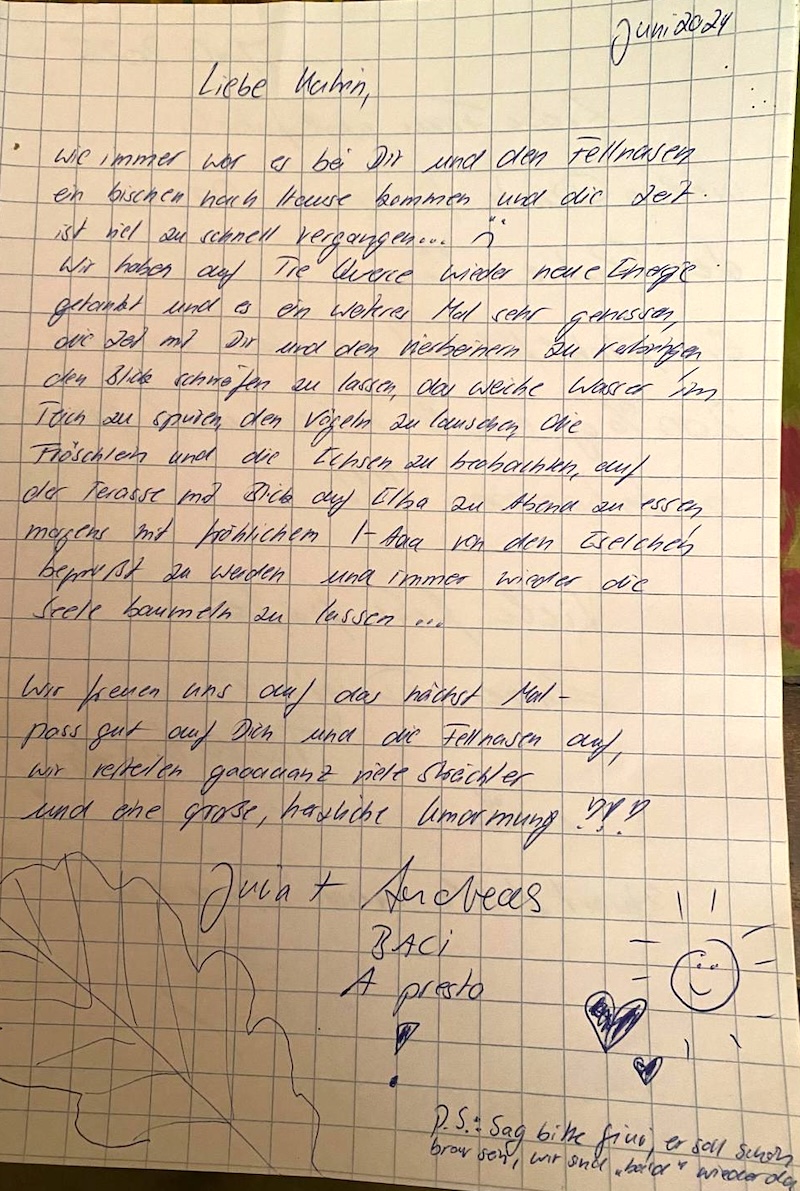 Juni 2024
Liebe Katrin,
wie immer war es bei Dir und den Fellnasen
ein bischen nach Hause kommen und die Zeit
ist viel zu schnell vergangen...
Wir haben auf Tre Querce wieder neue Energie
getankt und es ein weiteres Mal sehr genossen,
die Zeit mit Dir und den Vierbeinern zu verbringen
den Blick schweifen zu lassen, das weiche Wasser im
Tach zu spüren, den Vögeln zu lauschen, die
Fröschlein und die Echsen zu beobachten, auf
der Terasse mit Blick auf Elba zu Abend zu essen,
morgens mit fröhlichem I-Aaa von den Eselchen
begrüßt zu werden und immer wieder die
Seele baumeln zu lassen ...
Wir freuen uns auf das nächst Mal -
pass gut auf Dich und die Fellnasen auf,
wir verteilen gaaaaanz viele
und eine große, herzliche Umarmung !!!
Julia + Andreas
BACi
A presto
!
P.S.: Sag bitte Gini, er soll schön
brav sein, wir sind „bald" wieder da